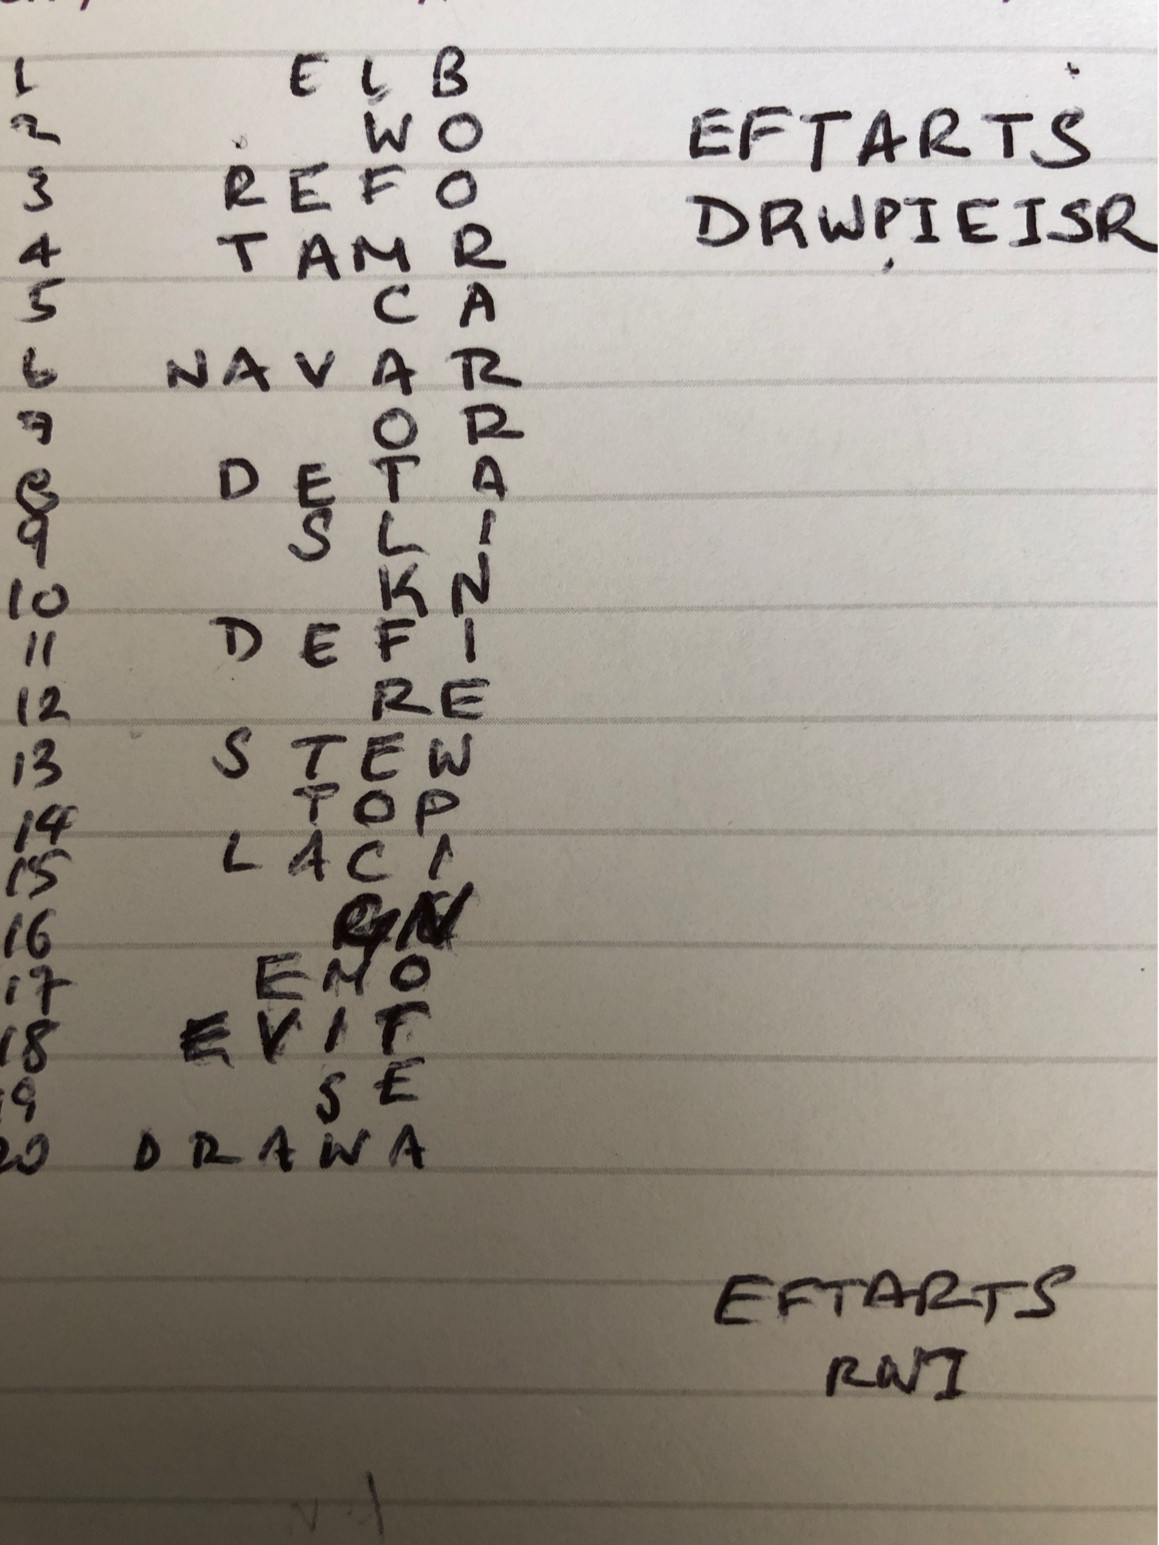 1 E L B
2 W O
3 R E F O
4 T A M R
5 C A
6 N A V A R
7 O R
8 D E T A
9 S L I
10 K N
11 D E F I
12 R E
13 S T E W
14 T O P
15 L A C I
16
17 E M O
18 E V I T
19 S E
20 D R A W A
EFTARTS
DRWPIEISR
EFTARTS
RWI